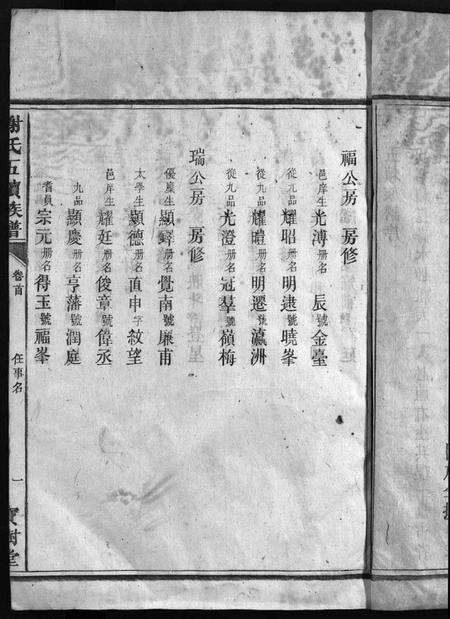 福公房 房修
邑庠生光溥册名辰號金臺
從九品耀昭册名明逮號曉峯
從九品耀暟册名明遷號瀛洲
從九品光澄册名冠羣號嶺梅
瑞公房 房修
優廩生顯鐸册名覺南號廉甫
太學生顯德册名直申字敘望
邑庠生耀廷册名俊章號偉丞
九品顯慶册名亨藩號潤庭
耆員宗元册名得玉號福峯
謝氏五續族譜 卷首 任事名 一 寶樹堂